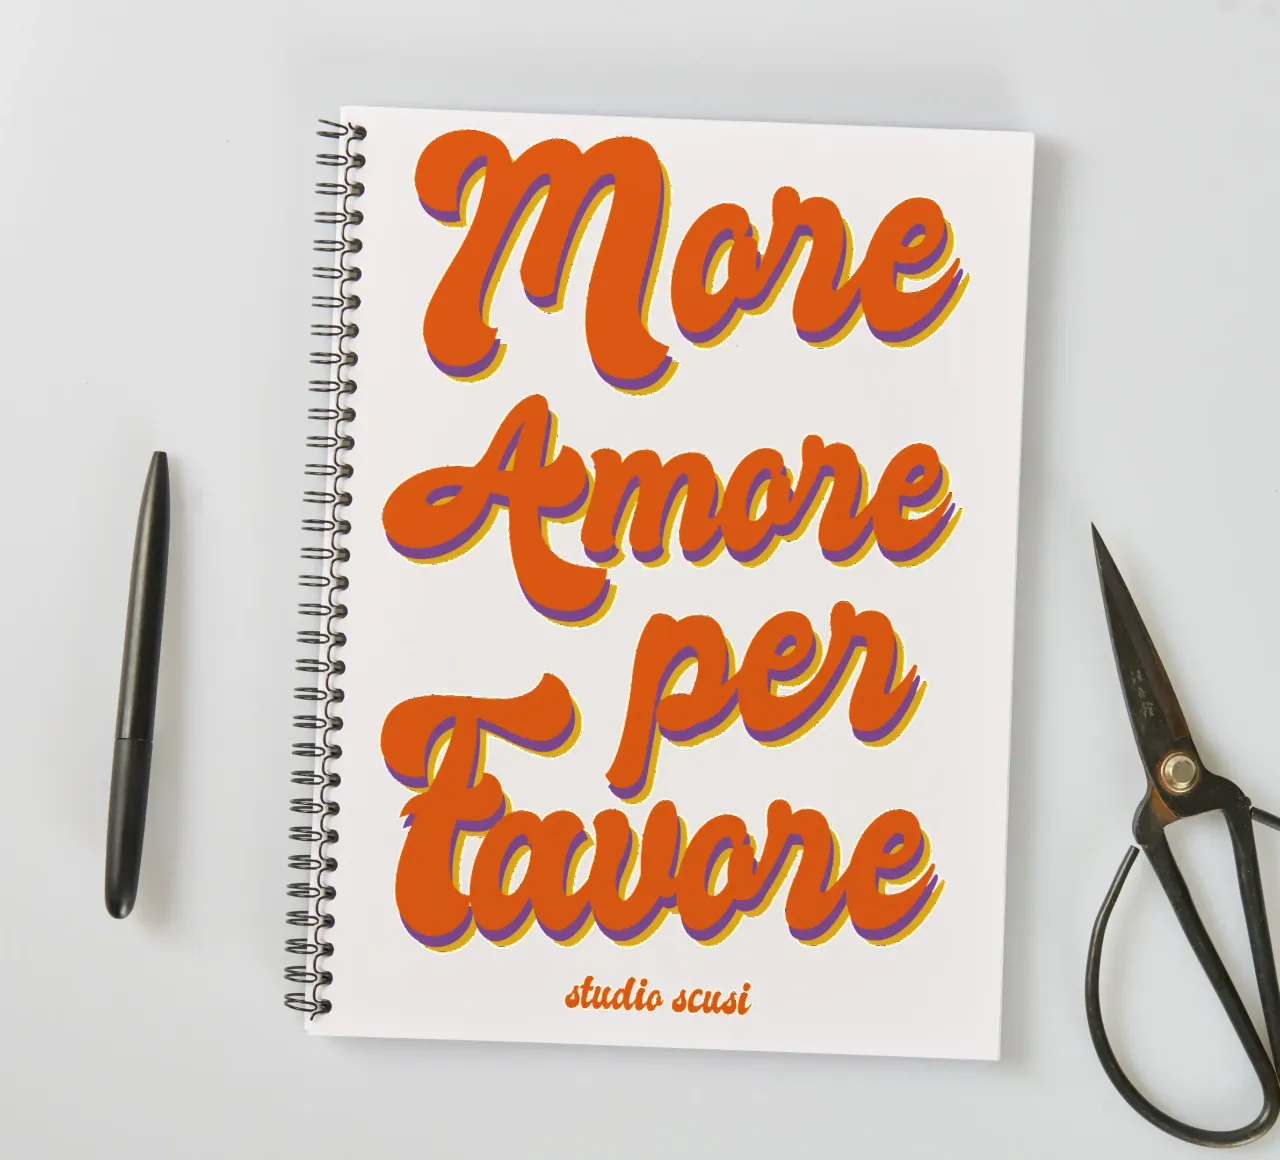 More
Amore
per
Favore
studio scusi